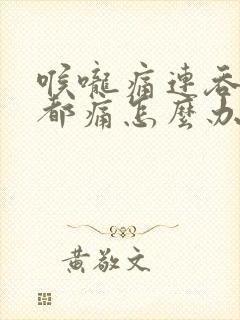 喉嚨痛連吞
都痛怎麼办
黃敬文